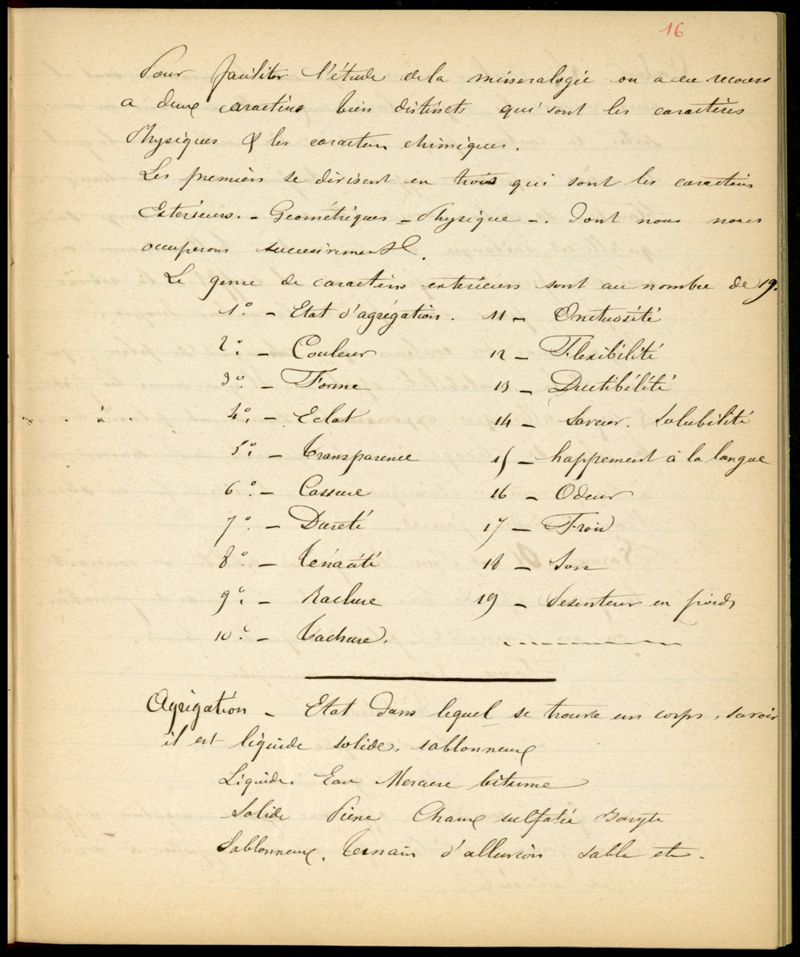 16
Pour faciliter l'étude de la minéralogie on a eu recours
a deux caractères bien distincts qui sont les caractères
Physiques & les caracters chimiques.
Les premiers se divisent en trois qui sont les caractères
Exterieurs. - Géométriques - Physique -. Dont nous nous
occuperons successivement.
Le genre de caractères exterieurs sont au nombre de 19.
1° - Etat d'agrégation. 11 - Onctuosité
2° - Couleur 12 - Flexibilité
3° - Forme 13 - Ductibilité
4° - Eclat 14 - Saveur. Solubilité
5° - Transparence 15 - happement à la langue
6° - Cassure 16 - Odeur
7° - Dureté 17 - Froid
8° - Ténacité 18 - Son
9° - Raclure 19 - Pesenteur en poids
10° - Tachure.
Agrégation - Etat dans lequel se trouve un corps, savoir
il est liquide solide, sablonneux
Liquide. Eau Mercure bitume
Solide Pierre Chaux sulfatée Baryte
Sablonneux. Terrain d'alluvion sable etc.